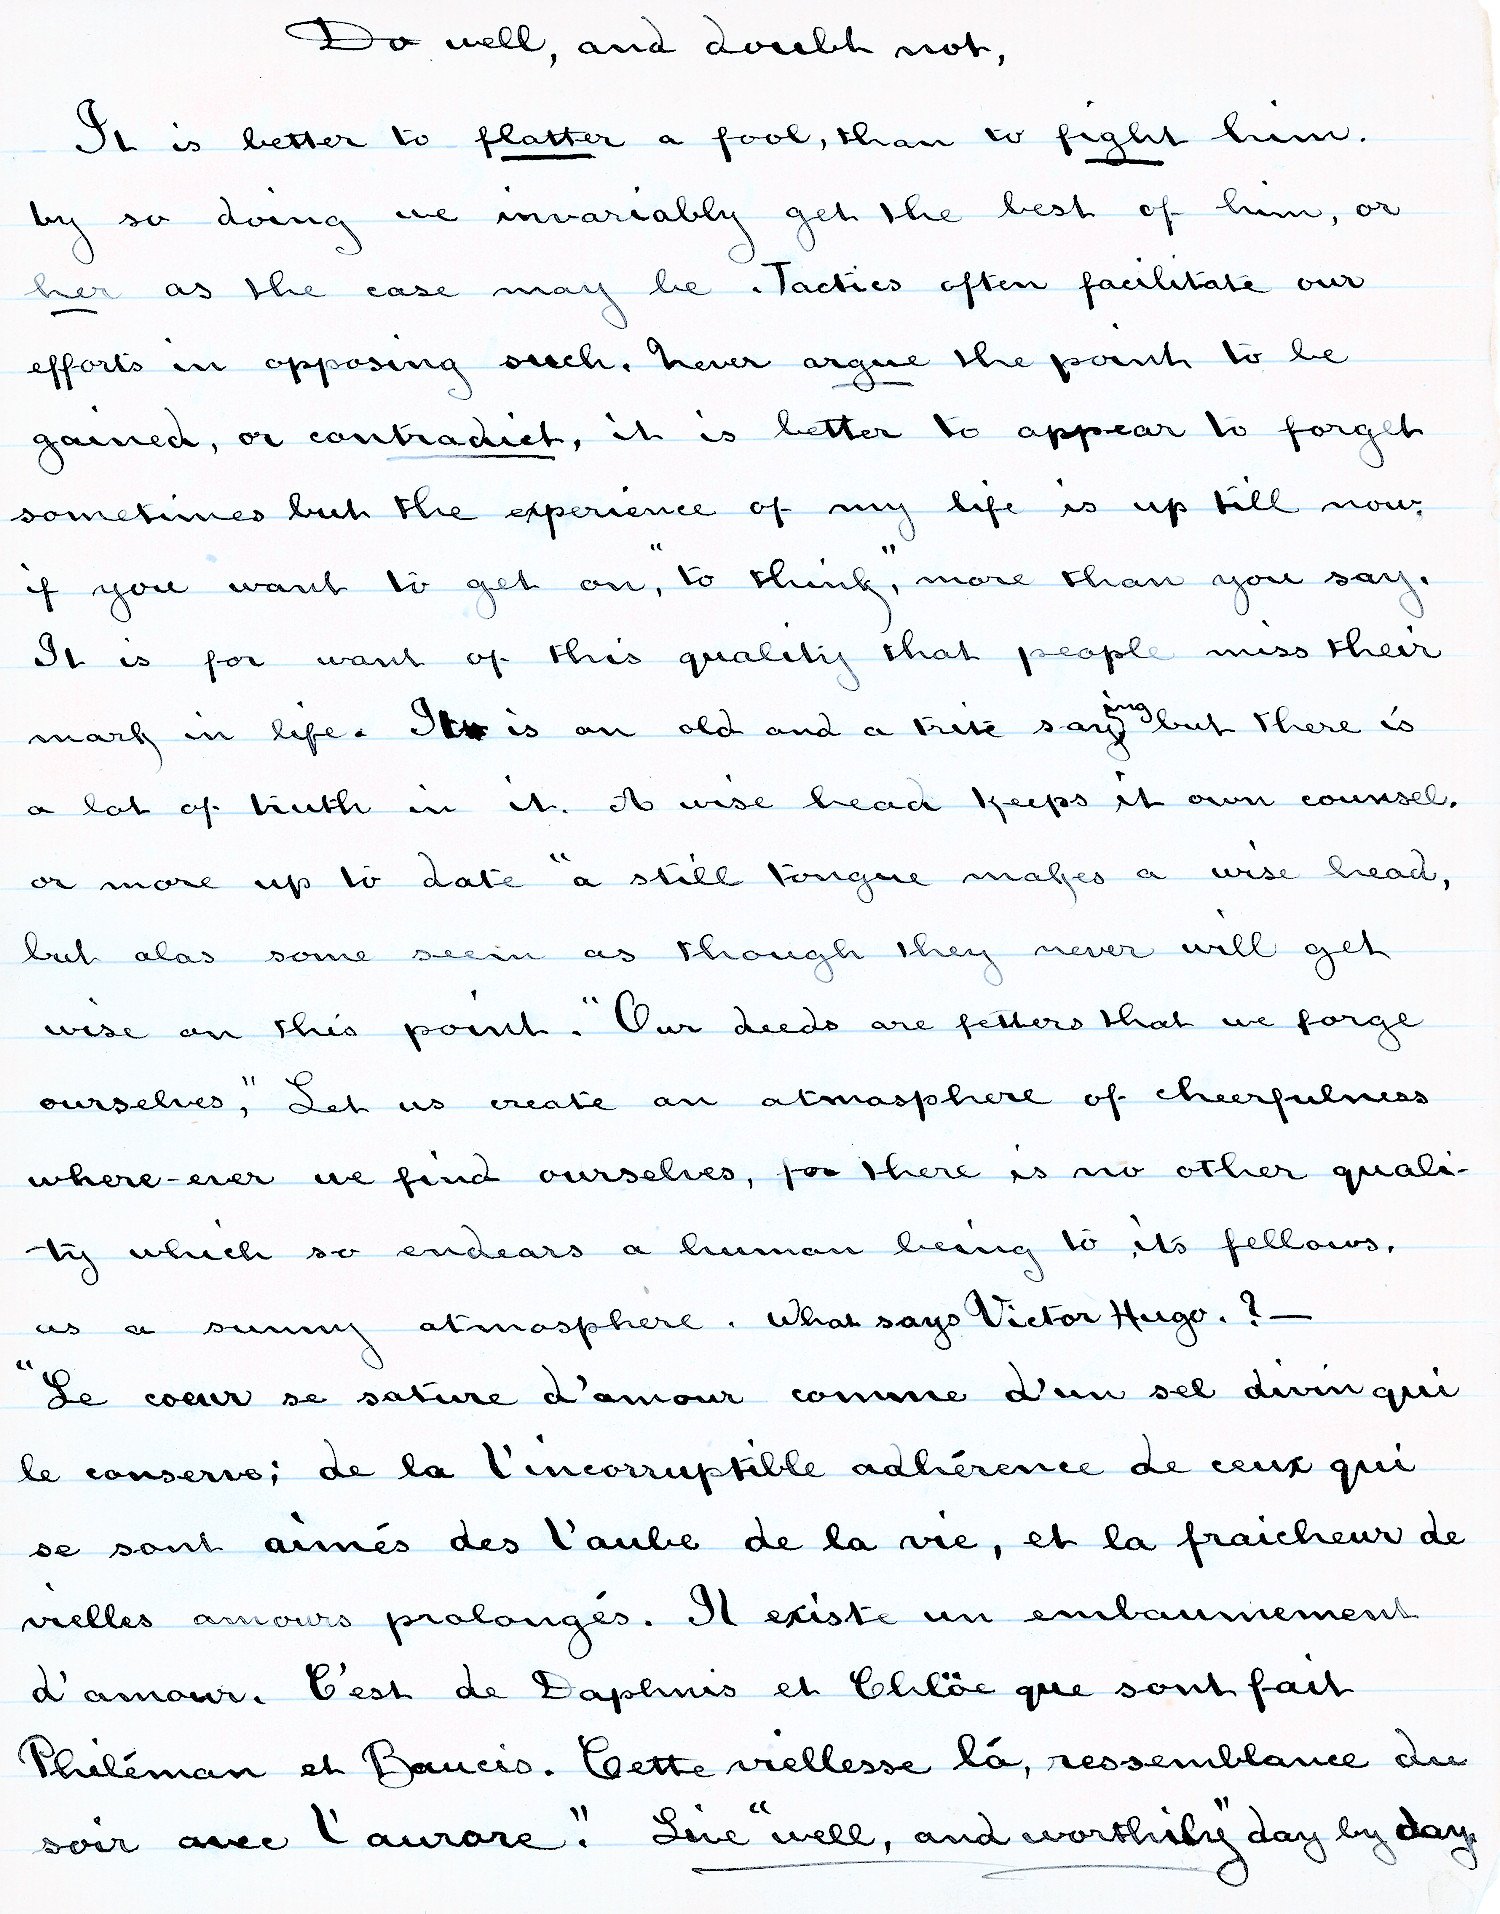 Do well, and doubt not,
It is better to flatter a fool, than to fight him.
by so doing we invariably get the best of him, or
her as the case may be. Tactics often facilitate our
efforts in opposing such. Never argue the point to be
gained, or contradict, it is better to appear to forget
sometimes but the experience of my life is up till now:
if you want to get on, "to think," more than you say.
It is for want of this quality that people miss their
mark in life. It is an old and a trite saying but there is
a lot of truth in it. A wise head keeps it own counsel.
or more up to date "a still tongue makes a wise head,
but alas some seem as though they never will get
wise on this point. "Our deeds are fetters that we forge
ourselves," Let us create an atmosphere of cheerfulness
where-ever we find ourselves, for there is no other quali-
ty which so endears a human being to its fellows.
as a sunny atmosphere. What says Victor Hugo.?—
"Le coeur se sature d'amour comme d'un sel divin qui
le conserve; de la l'incorruptible adhérence de ceux qui
se sont aimés des l'aube de la vie, et la fraicheur de
vielles amours prolongés. Il existe un embaumement
d'amour. C'est de Daphnis et Chlöe que sont fait
Philéman et Baucis. Cette viellesse lá, ressemblance du
soir avec l'aurore." Live "well, and worthily" day by day.